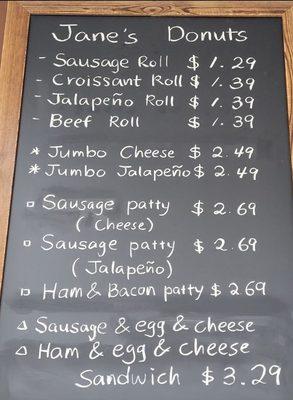 Jane's Donuts
- Sausage Roll $1.29
- Croissant Roll $1.39
- Jalapeño Roll $1.39
- Beef Roll $1.39
* Jumbo Cheese $2.49
* Jumbo Jalapeño $2.49
□ Sausage patty $2.69
(Cheese)
□ Sausage patty $2.69
(Jalapeño)
□ Ham & Bacon patty $2.69
△ Sausage & egg & cheese
△ Ham & egg & cheese
Sandwich $3.29